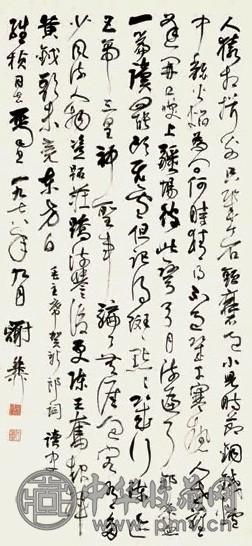 人猿相揖别只几个石头磨过小儿时节铜铁炉
中翻火焰为问何时猜得不过几千寒热人世难
逢开口笑上疆场彼此弯弓月流遍了郊原血
一篇读罢头飞雪但记得斑斑点点几行陈迹
五帝三皇神圣事骗了无涯过客有多
少风流人物盗跖庄蹻流誉后更陈王奋起挥
黄钺歌未竟东方白 毛主席贺新郎词读史
同志 一九七八年九月 谢
中华收藏网